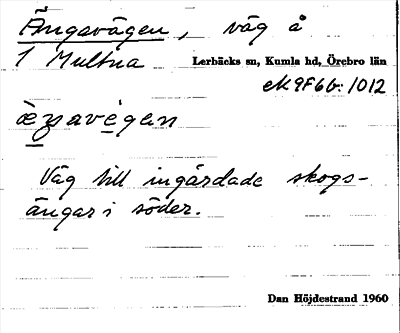 Ängsvägen, väg å
1 Multna Lerbäcks sn, Kumla hd, Örebro län
ek 9F6b: 1012
Väg till ingärdade skogs-
ängar i söder.
Dan Höjdestrand 1960